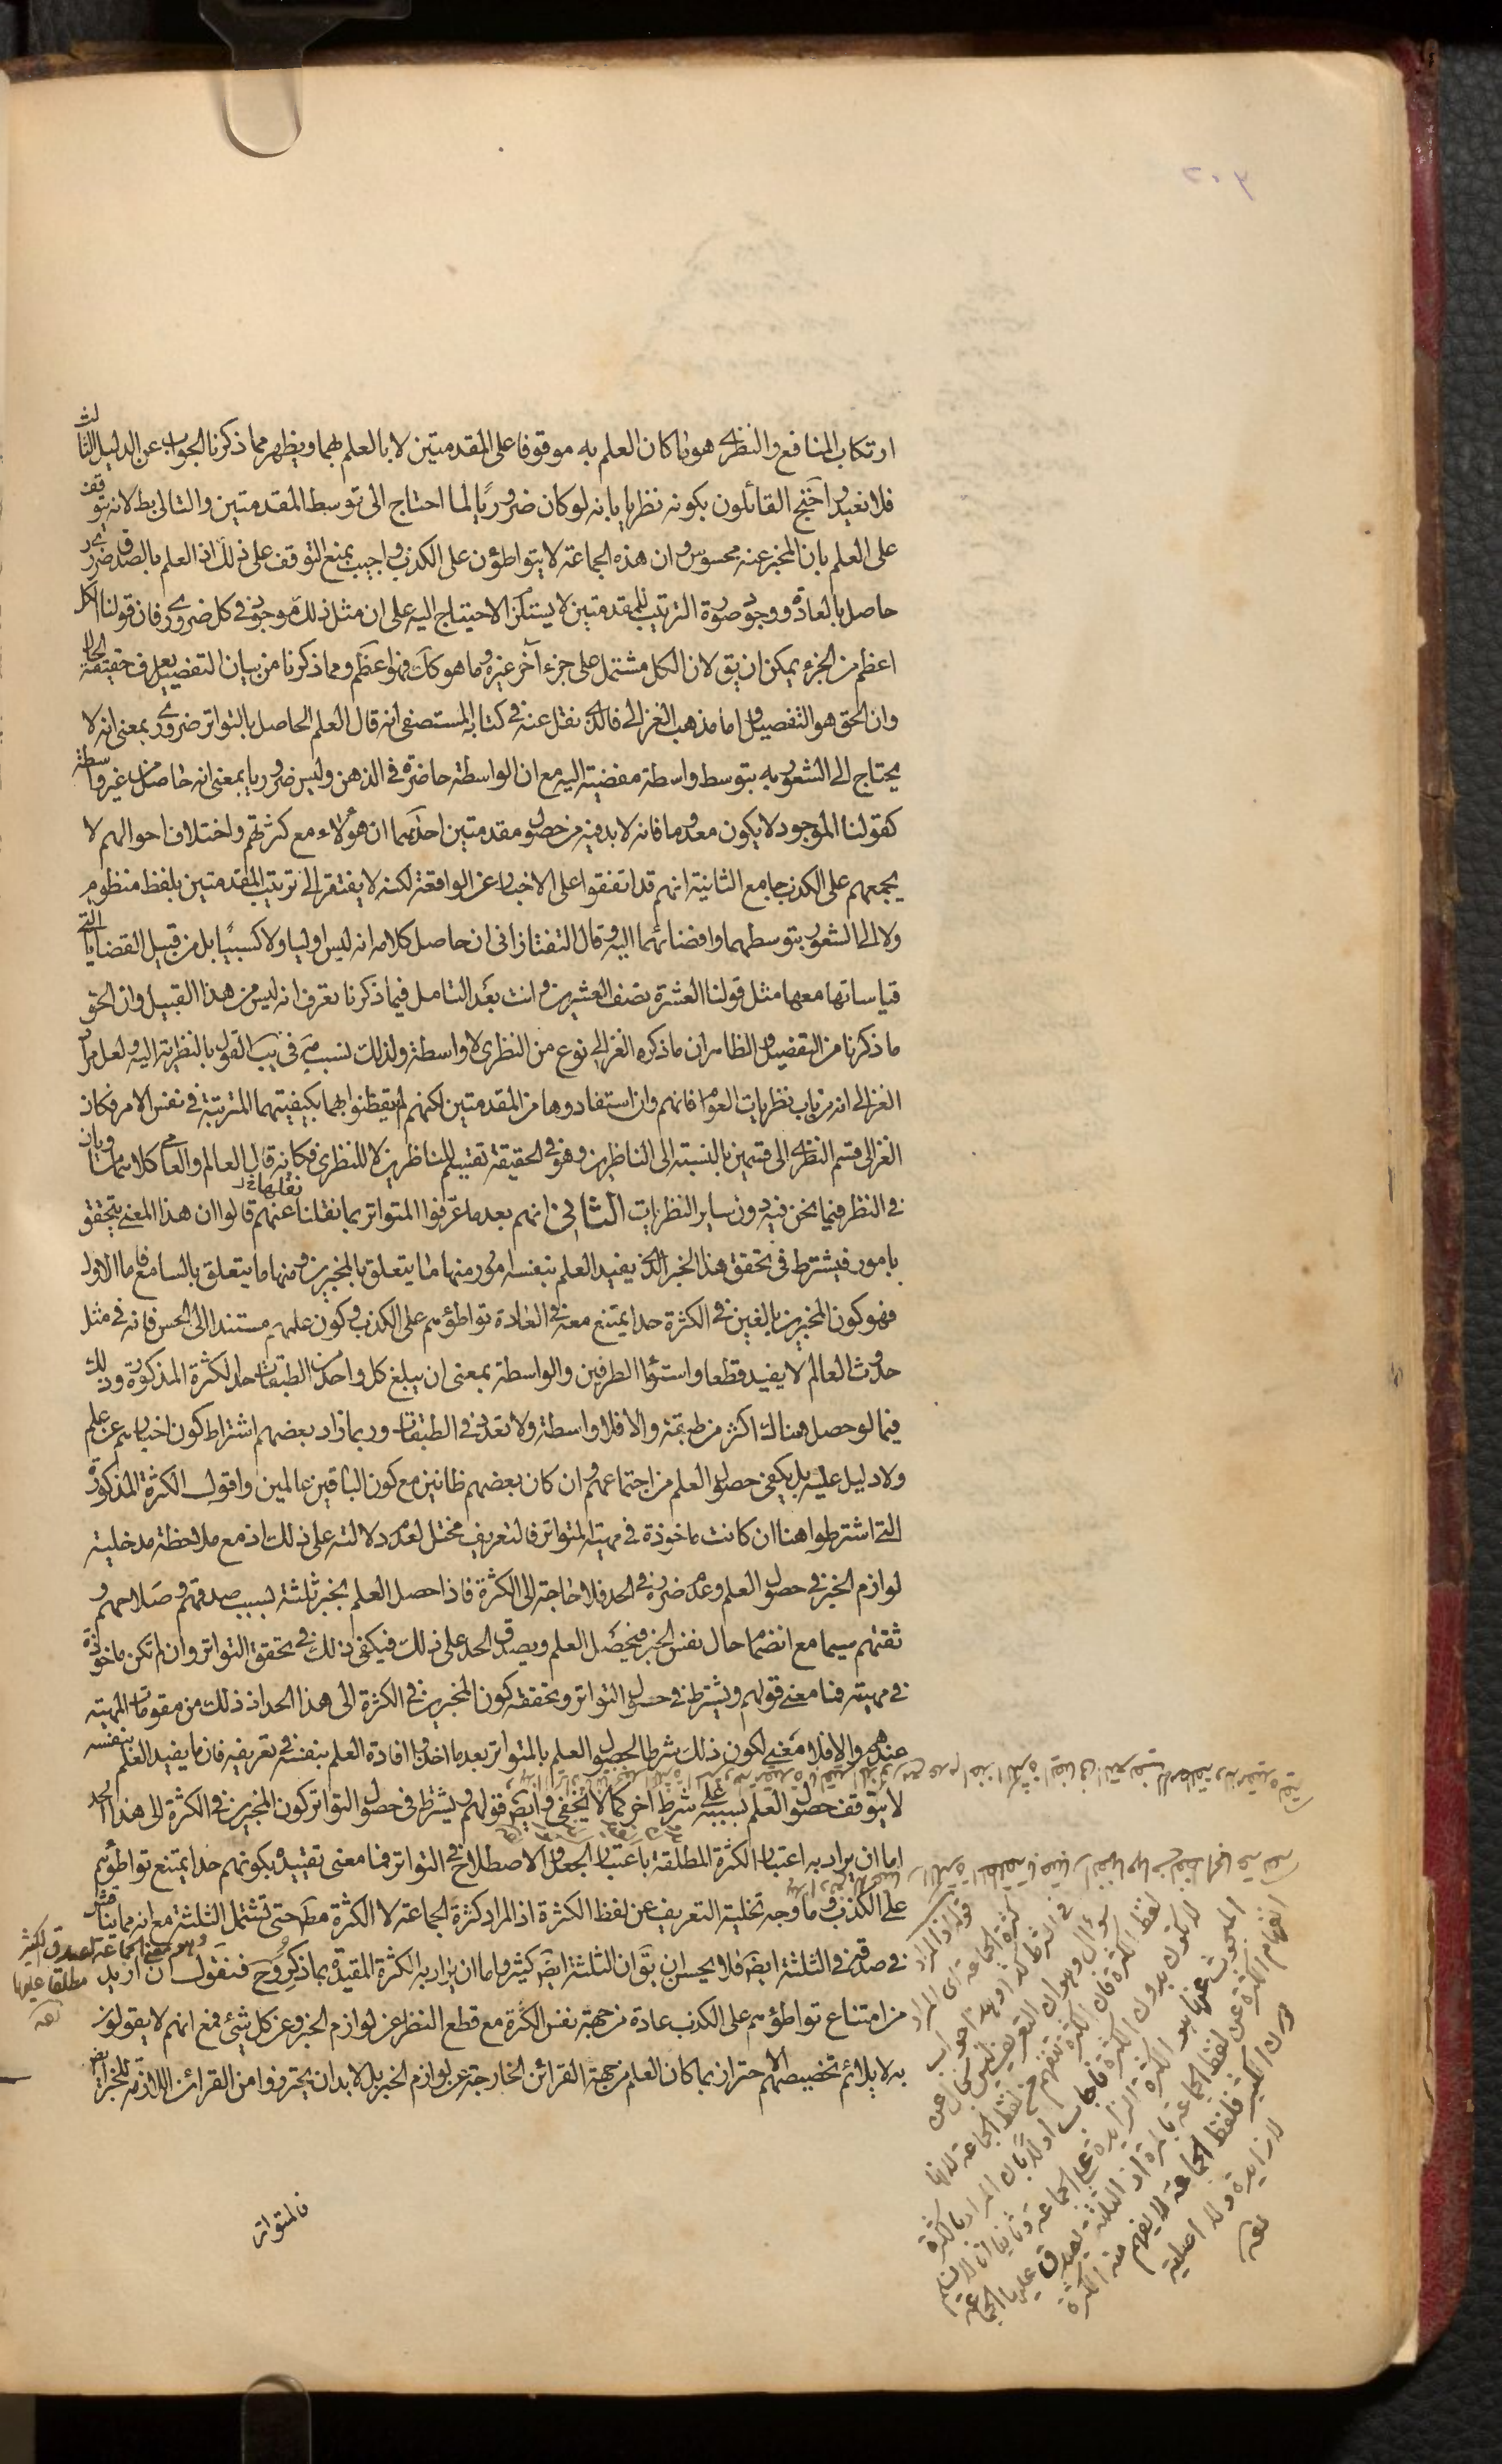 ٣٠٢
ارتكاب المنافع والنظرى هو ما كان العلم به موقوفا على المقدمتين لا بالعلم بهما ويظهر مما ذكرنا الجواب عن الدليل الثالث
فلا نعيد واحتج القائلون بكونه نظريا بانه لو كان ضروريًا لما احتاج الى توسط المقدمتين والتالى بط لانه يتوقف
على العلم بان المخبر عنه محسوس وان هذه الجماعة لا يتواطؤن على الكذب واجيب بمنع التوقف على ذلك اذ العلم بالصدق ضرورى
حاصل بالعادة ووجود صورة الترتيب للمقدمتين لا يستلزم الاحتياج اليه على ان مثل ذلك موجود فى كل ضرورى فان قولنا الكل
اعظم من الجزء يمكن ان يق لان الكل مشتمل على جزء آخر غيره وما هو كك فهو اعظم ومما ذكرنا من بيان التفصيل يعرف حقيقة الحال
وان الحق هو التفصيل واما مذهب الغزالى فالذى نقل عنه فى كتابه المستصفى انه قال العلم الحاصل بالتواتر ضرورى بمعنى انه لا
يحتاج الى الشعور به بتوسط واسطة مفضية اليه مع ان الواسطة حاضرة فى الذهن وليس ضروريا بمعنى انه حاصل من غير واسطة
كقولنا الموجود لا يكون معدوما فانه لا بد فيه من حصول مقدمتين احديهما ان هؤلاء مع كثرتهم واختلاف احوالهم لا
يجمعهم على الكذب جامع الثانية انهم قد اتفقوا على الاخبار عن الواقعة لكنه لا يفتقر الى ترتيب المقدمتين بلفظ منظوم
ولا الى الشعور بتوسطهما وافضائهما اليه وقال التفتازانى ان حاصل كلامه انه ليس اوليا ولا كسبيًا بل من قبيل القضايا التى
قياساتها معها مثل قولنا العشرة نصف العشرين وانت بعد التامل فيما ذكرنا تعرف انه ليس من هذا القبيل وان الحق
ما ذكرنا من التفصيل والظاهر ان ما ذكره الغزالى نوع من النظرى لا واسطة ولذلك نسب القول بالنظرية اليه ولعل مراد
الغزالى انه من باب نظريات العوام فانهم وان استفادوها من المقدمتين لكنهم لم يتفطنوا بهما بكيفيتهما المترتبة فى نفس الامر فكان
الغزالى قسم النظرى الى قسمين بالنسبة الى الناظرين وهو فى الحقيقة تقسيم للناظرين لا للنظرى فكانه قال العالم والعامى كلاهما متساويان
فى النظر فيما نحن فيه دون ساير النظريات الثانى انهم بعد ما عرّفوا المتواتر بما نقلنا عنهم قالوا ان هذا المعنى يتحقق
بامور فيشترط فى تحقق هذا الخبر الذى يفيد العلم بنفسه امور منها ما يتعلق بالمخبرين ومنها ما يتعلق بالسامع فاما الاول
فهو كون المخبرين بالغين فى الكثرة حدا يمتنع معه فى العادة تواطؤهم على الكذب وكون علمهم مستندا الى الحس فانه فى مثل
حدوث العالم لا يفيد قطعا واستواء الطرفين والواسطة بمعنى ان يبلغ كل واحد من الطبقات حد الكثرة المذكورة وذلك
فيما لو حصل هناك اكثر من طبقة والا فلا واسطة ولا تعدد فى الطبقات وربما زاد بعضهم اشتراط كون اخبارهم عن علم
ولا دليل عليه بل يكفى حصول العلم من اجتماعهم وان كان بعضهم ظانين مع كون الباقين عالمين واقول الكثرة المذكورة
التى اشترطوا هنا ان كانت ماخوذة فى مهية المتواتر فالتعريف مختل لعدم دلالته على ذلك اذ مع ملاحظة مدخلية
لوازم الخبر فى حصول العلم وعدم ضرره فى الحد فلا حاجة الى الكثرة فاذا حصل العلم بخبر ثلثة بسبب صدقهم وصلاحهم و
ثقتهم سيما مع انضمام حال نفس الخبر فيحصل العلم ويصدق الحد على ذلك فيكفى ذلك فى تحقق التواتر وان لم تكن ماخوذة
فى مهيته فما معنى قولهم ويشترط فى حصول التواتر وتحققه كون المخبرين فى الكثرة الى هذا الحد اذ ذلك من مقومات المهية
عندهم والا فلا معنى لكون ذلك شرطا لحصول العلم بالمتواتر بعد ما اخذوا افادة العلم بنفسه فى تعريفه فان ما يفيد العلم بنفسه
لا يتوقف حصول العلم بسببه على شرط آخر كما لا يخفى وايض قولهم ويشترط فى حصول التواتر كون المخبرين فى الكثرة الى هذا الحد
اما ان يراد به اعتبار الكثرة المطلقة باعتبار الجعل والاصطلاح فى التواتر فما معنى تقييده بكونهم حدا يمتنع تواطؤهم
على الكذب وما وجه تخلية التعريف عن لفظ الكثرة اذ المراد كثرة الجماعة لا الكثرة مط حتى تشتمل الثلثة مع انه مما يناقش
فى صدقه فى الثلثة ايض فلا يحسن ان يق ان الثلثة ايض كثير واما ان يراد به الكثرة المقيدة بما ذكروه وح فنقول ان اريد
من امتناع تواطؤهم على الكذب عادة من جهة نفس الكثرة مع قطع النظر عن لوازم الخبر وعن كل شئ فمع انهم لا يقولون
به لا يلائم تخصيصهم الاحتراز بما كان العلم من جهة القرائن الخارجة عن لوازم الخبر بل لا بد ان يحترزوا من القرائن اللازمة للخبر ايض
وهو معنى الجماعة لصدق الكثير
مطلقا عليها
منه
قوله اذ المراد
كثرة الجماعة اى المراد
لفظ الكثرة فان الكثرة تنفهم من لفظ الجماعة لانها
لا تكون بدون الكثرة فاجاب اولا بان المراد بالكثرة
المبحوث عنها هو الكثرة الزايدة على الجماعة وثانيا انا لا نسلم
انفهام الكثرة عن لفظ الجماعة بالمرة اذ الثلثة يصدق عليها الجماعة
دون الكثير فلفظ الجماعة لا يفهم منه الكثرة
لا زايدة ولا اصلية
منه
فالمتواتر